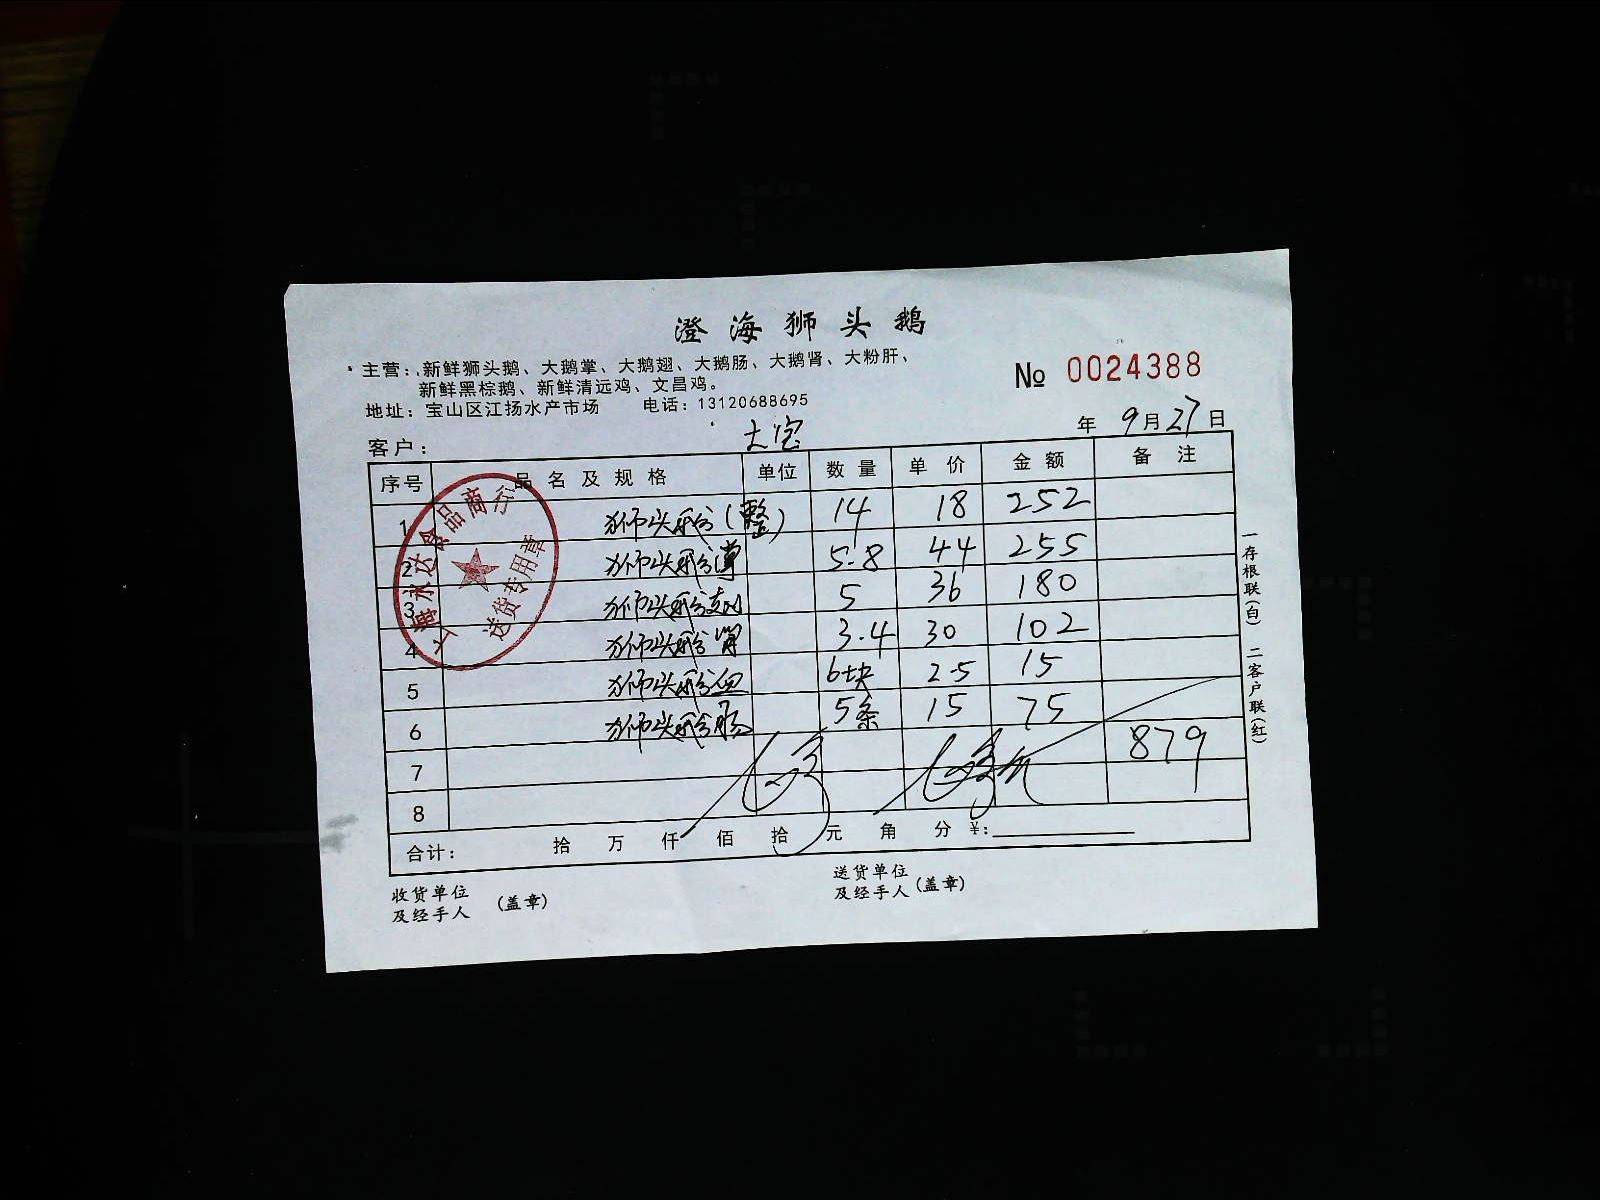 澄海狮头鹅
主营：新鲜狮头鹅、大鹅掌、大鹅翅、大鹅肠、大鹅肾、大粉肝、
新鲜黑棕鹅、新鲜清远鸡、文昌鸡。
No 0024388
地址：宝山区江扬水产市场 电话：13120688695
年 9月27日
客户： 大宝
序号 品名及规格 单位 数量 单价 金额 备注
1 狮头鹅(整) 14 18 252
2 狮头鹅掌 5.8 44 255
3 狮头鹅翅 5 36 180
4 狮头鹅肾 3.4 30 102
5 狮头鹅血 6块 2.5 15
6 狮头鹅肠 5条 15 75
7 879
8
合计： 拾 万 仟 佰 拾 元 角 分 ￥:
收货单位
及经手人 (盖章)
送货单位
及经手人 (盖章)
一存根联(白) 二客户联(红)
食品商行
送货专用章